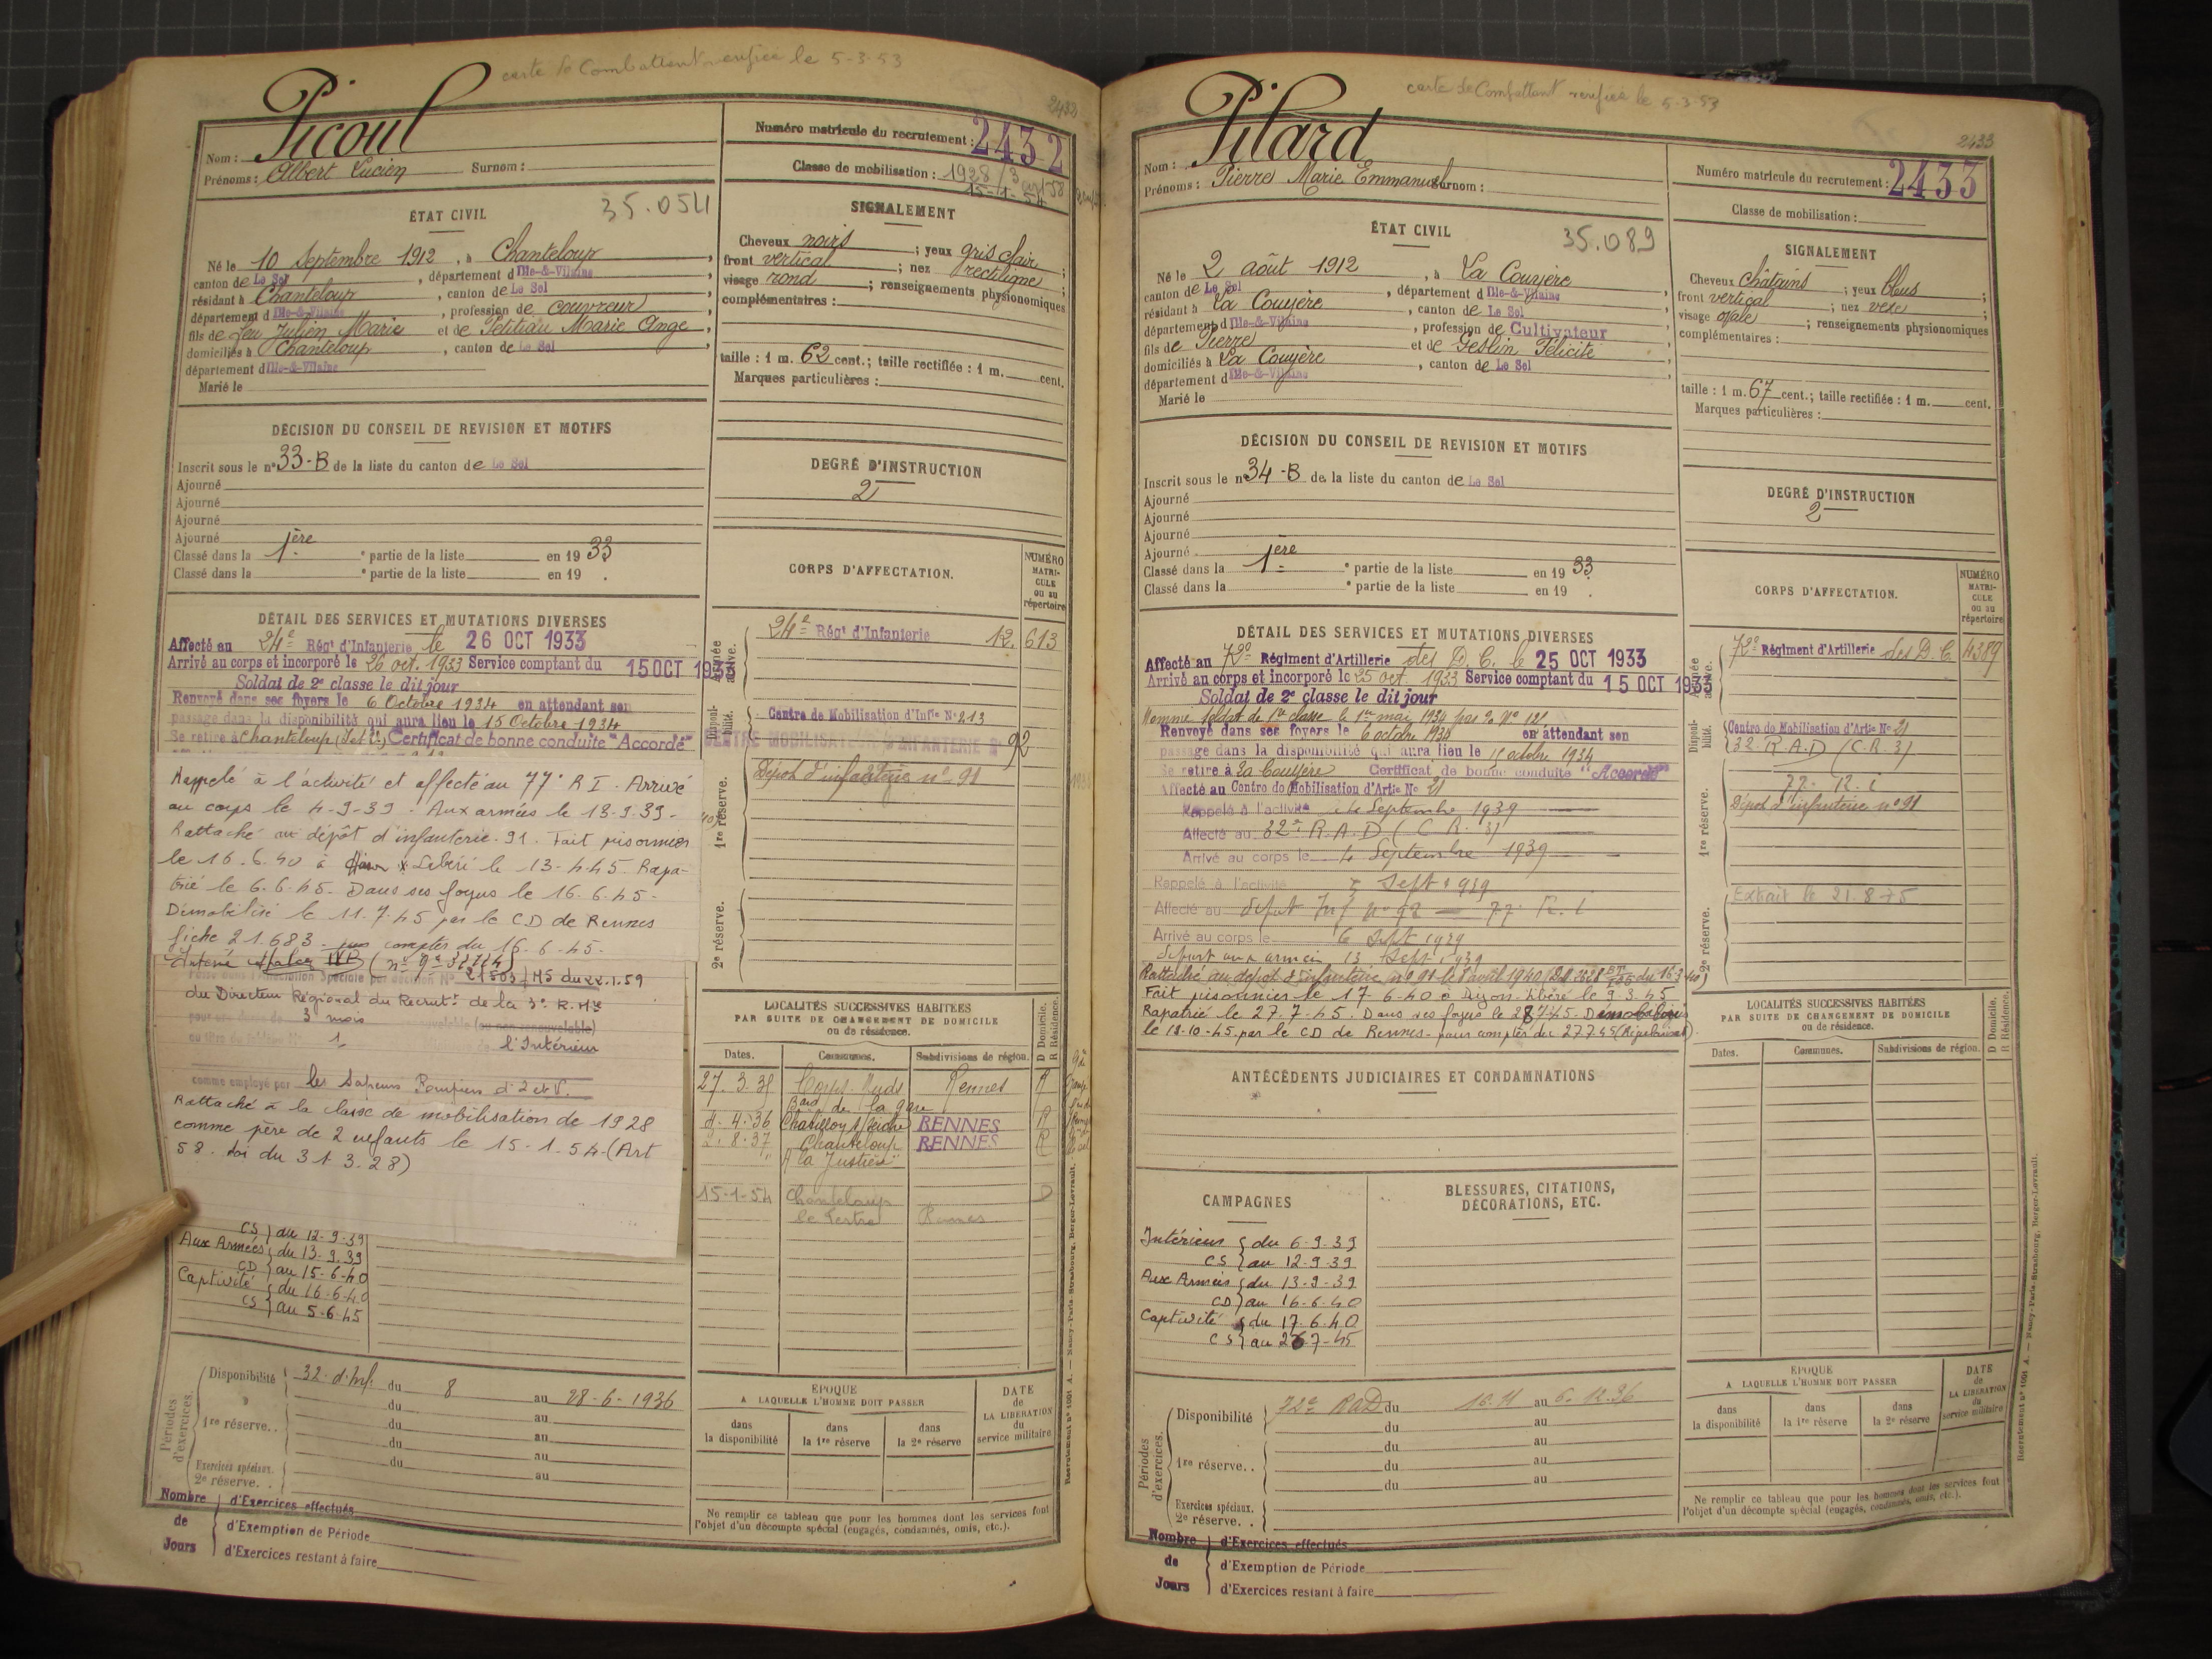 carte de Combattant verifiée le 5-3-53
2432
Picoul
Nom :
Prénoms : Albert Lucien Surnom :
Numéro matricule du recrutement : 2432
Classe de mobilisation : 1928/3 art 58
15-1-54
35.054
ÉTAT CIVIL
Né le 10 Septembre 1912, à Chanteloup,
canton de Le Sel, département d'Ille-&-Vilaine,
résidant à Chanteloup, canton de Le Sel
département d'Ille-&-Vilaine, profession de couvreur,
fils de feu Julien Marie et de Petitiau Marie Ange,
domiciliés à Chanteloup, canton de Le Sel
département d'Ille-&-Vilaine
Marié le
SIGNALEMENT
Cheveux noirs ; yeux gris clair ;
front vertical ; nez rectiligne ;
visage rond ; renseignements physionomiques
complémentaires :
taille : 1 m. 62 cent.; taille rectifiée : 1 m. cent.
Marques particulières :
DÉCISION DU CONSEIL DE REVISION ET MOTIFS
Inscrit sous le n° 33-B de la liste du canton de Le Sel
Ajourné
Ajourné
Ajourné
Ajourné
Classé dans la 1ère partie de la liste en 1933
Classé dans la e partie de la liste en 19 .
DEGRÉ D'INSTRUCTION
2
DÉTAIL DES SERVICES ET MUTATIONS DIVERSES
Affecté au 24e Régt d'Infanterie le 26 OCT 1933
Arrivé au corps et incorporé le 26 oct. 1933 Service comptant du 15 OCT 1933
Soldat de 2e classe le dit jour
Renvoyé dans ses foyers le 6 Octobre 1934 en attendant son
passage dans la disponibilité qui aura lieu le 15 Octobre 1934
Se retire à Chanteloup (I et V) Certificat de bonne conduite "Accordé"
Rappelé à l'activité et affecté au 77e R I. Arrivé
au corps le 4-9-39. Aux armées le 13-9-39-
Rattaché au dépôt d'infanterie 91. Fait prisonnier
le 16.6.40 à Libéré le 13-4-45. Rapa-
trié le 6.6.45. Dans ses foyers le 16.6.45-
Démobilisé le 11.7.45 par le CD de Rennes
fiche 21.683 compter du 16-6-45-
Interné Stalag IVB
Spéciale par décision N° 21503/MS du 22.1.59
du Directeur Régional du Recrutt de la 3e R. Mre
pour une durée de 3 mois (ou non renouvelable)
1 l'Intérieur
comme employé par les Sapeurs Pompiers d'I et V.
Rattaché à la classe de mobilisation de 1928
comme père de 2 enfants le 15-1-54 (Art
58. loi du 31.3.28)
CS } au 12-9-39
Aux Armées { du 13-9-39
CD } au 15-6-40
Captivité { du 16-6-40
CS } au 5-6-45
CORPS D'AFFECTATION.
NUMÉRO MATRI-CULE ou au répertoire
Armée active.
24e Régt d'Infanterie 12. 613
Disponi-bilité.
Centre de Mobilisation d'Infie N° 213
CENTRE MOBILISATEUR D'INFANTERIE N° 92
1re réserve.
Dépôt d'infanterie n° 91
2e réserve.
LOCALITÉS SUCCESSIVES HABITÉES
PAR SUITE DE CHANGEMENT DE DOMICILE
ou de résidence.
D Domicile. R Résidence.
Dates. Communes. Subdivisions de région.
27.3.35 Corps-Nuds Rennes R
Bard de la gare
4.4.36 Chatillon s/Seiche RENNES R
2.8.37 Chanteloup RENNES R
"A la Justice"
15-1-54 Chanteloup D
le Tertre Rennes
Périodes d'exercices.
Disponibilité 32e d'Inf. du 8 au 28-6-1936
du au
1re réserve. . du au
du au
du au
Exercices spéciaux.
2e réserve. . au
Nombre de Jours
d'Exercices effectués
d'Exemption de Période
d'Exercices restant à faire
ÉPOQUE
A LAQUELLE L'HOMME DOIT PASSER
dans la disponibilité
dans la 1re réserve
dans la 2e réserve
DATE de LA LIBÉRATION du service militaire
Ne remplir ce tableau que pour les hommes dont les services font
l'objet d'un décompte spécial (engagés, condamnés, omis, etc.).
Recrutement n° 1001 A. — Nancy-Paris-Strasbourg, Berger-Levrault.
carte de Combattant verifiée le 5-3-53
2433
Pilard
Nom :
Prénoms : Pierre Marie Emmanuel Surnom :
Numéro matricule du recrutement : 2433
Classe de mobilisation :
35.089
ÉTAT CIVIL
Né le 2 août 1912, à La Couyère
canton de Le Sel, département d'Ille-&-Vilaine,
résidant à La Couyère, canton de Le Sel
département d'Ille-&-Vilaine, profession de Cultivateur
fils de Pierre et de Geslin Félicité
domiciliés à La Couyère, canton de Le Sel
département d'Ille-&-Vilaine
Marié le
SIGNALEMENT
Cheveux châtains ; yeux bleus ;
front vertical ; nez vexe ;
visage ovale ; renseignements physionomiques
complémentaires :
taille : 1 m. 67 cent.; taille rectifiée : 1 m. cent.
Marques particulières :
DÉCISION DU CONSEIL DE REVISION ET MOTIFS
Inscrit sous le n° 34-B de la liste du canton de Le Sel
Ajourné
Ajourné
Ajourné
Ajourné
Classé dans la 1ère partie de la liste en 1933
Classé dans la e partie de la liste en 19 .
DEGRÉ D'INSTRUCTION
2
DÉTAIL DES SERVICES ET MUTATIONS DIVERSES
Affecté au 72e Régiment d'Artillerie des D. C. le 25 OCT 1933
Arrivé au corps et incorporé le 25 oct. 1933 Service comptant du 15 OCT 1933
Soldat de 2e classe le dit jour
Nommé soldat de 1re classe le 1er mai 1934
Renvoyé dans ses foyers le 6 octobre 1934 en attendant son
passage dans la disponibilité qui aura lieu le 15 octobre 1934
Se retire à La Couyère Certificat de bonne conduite "Accordé"
Affecté au Centre de Mobilisation d'Artie N° 21
Rappelé à l'activité Septembre 1939
Affecté au 32e R.A.D (C.R. 3)
Arrivé au corps le 4 Septembre 1939
Rappelé à l'activité 5 Sept 1939
Affecté au dépôt Inf n° 92 — 77e R. I
Arrivé au corps le 6 Sept 1939
départ aux armées 13 Sept 1939
Rattaché au dépôt d'infanterie n° 91 le 1 avril 1940
Fait prisonnier le 17-6-40 à Dijon. Libéré le 9-3-45
Rapatrié le 27.7.45. Dans ses foyers le 28-7-45. Démobilisé
le 18-10-45 par le CD de Rennes pour compter du 27.7.45
ANTÉCÉDENTS JUDICIAIRES ET CONDAMNATIONS
CAMPAGNES
Intérieur { du 6-9-39
CS } au 12-9-39
Aux Armées { du 13-9-39
CD } au 16-6-40
Captivité { du 17-6-40
CS } au 26-7-45
BLESSURES, CITATIONS,
DÉCORATIONS, ETC.
CORPS D'AFFECTATION.
NUMÉRO MATRI-CULE ou au répertoire
Armée active.
72e Régiment d'Artillerie des D.C. 4389
Disponi-bilité.
Centre de Mobilisation d'Artie N° 21
32 R.A.D (C.R. 3)
1re réserve.
77e R. I
Dépôt d'infanterie n° 91
2e réserve.
Extrait le 21.8.75
LOCALITÉS SUCCESSIVES HABITÉES
PAR SUITE DE CHANGEMENT DE DOMICILE
ou de résidence.
D Domicile. R Résidence.
Dates. Communes. Subdivisions de région.
Périodes d'exercices.
Disponibilité 72e RAD du 16.11 au 6.12.36
du au
du au
1re réserve. . du au
du au
Exercices spéciaux.
2e réserve. .
Nombre de Jours
d'Exercices effectués
d'Exemption de Période
d'Exercices restant à faire
ÉPOQUE
A LAQUELLE L'HOMME DOIT PASSER
dans la disponibilité
dans la 1re réserve
dans la 2e réserve
DATE de LA LIBÉRATION du service militaire
Ne remplir ce tableau que pour les hommes dont les services font
l'objet d'un décompte spécial (engagés, condamnés, omis, etc.).
Recrutement n° 1001 A. — Nancy-Paris-Strasbourg, Berger-Levrault.